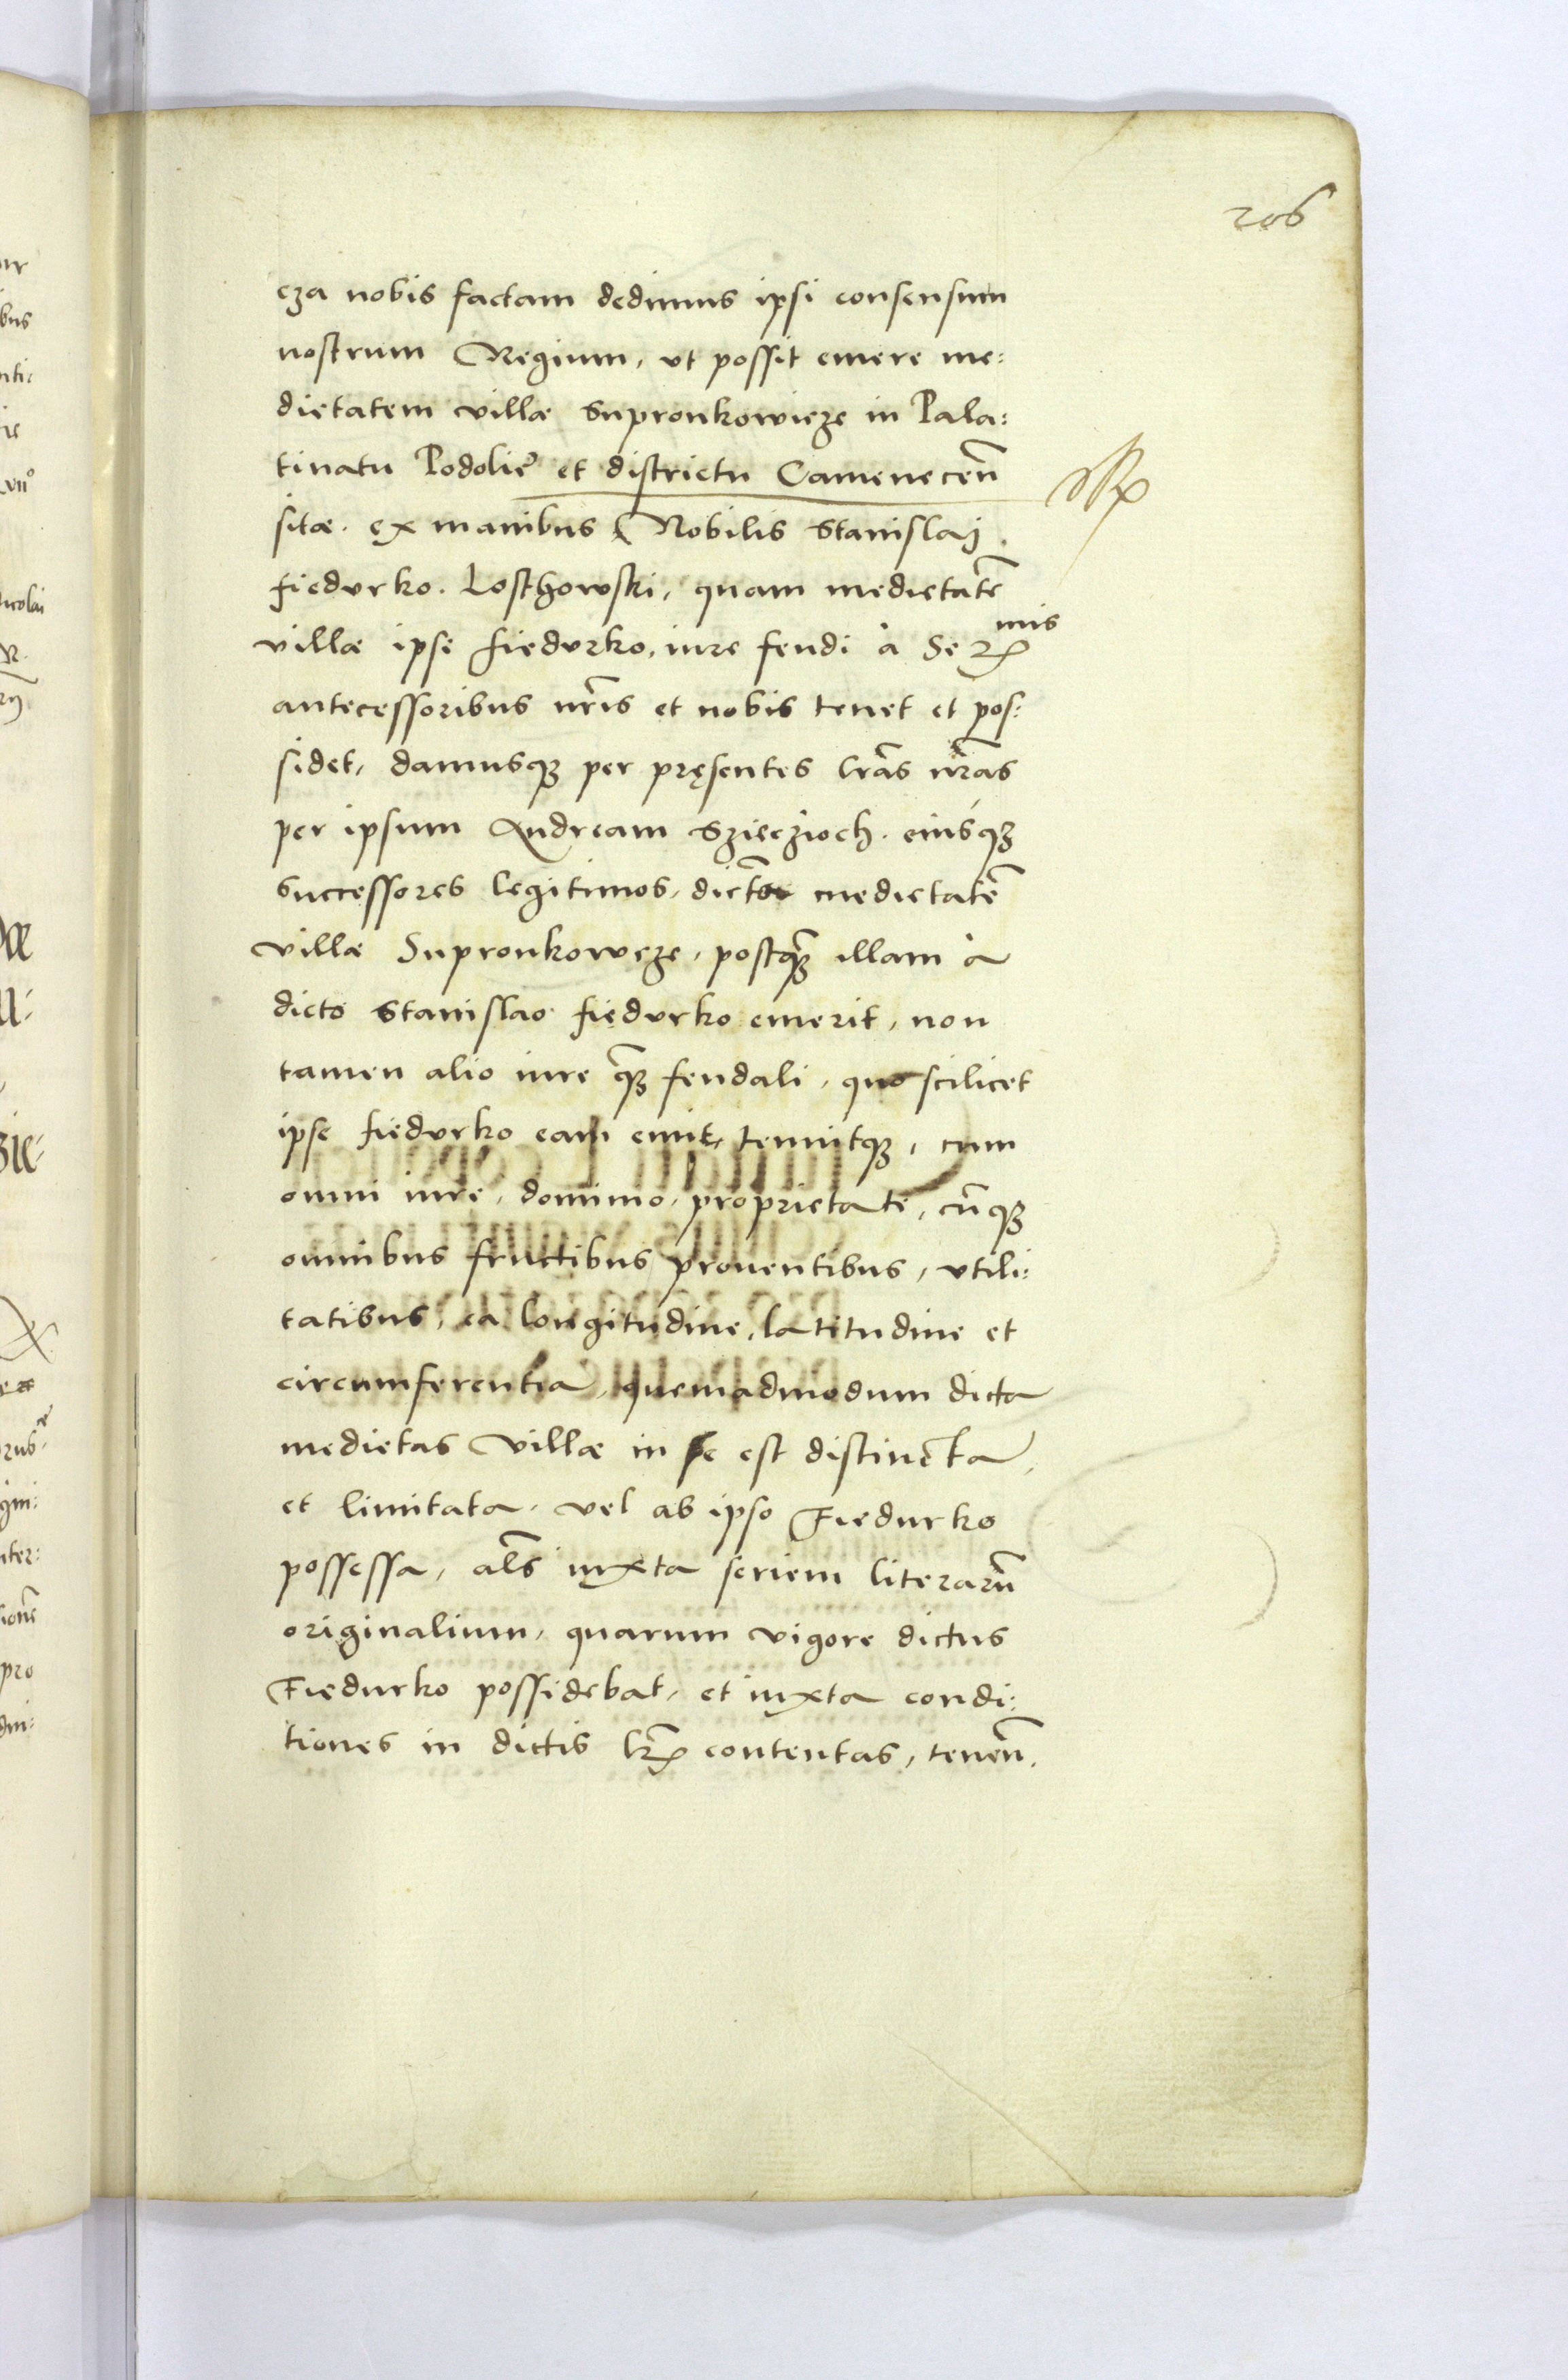 206
eza nobis factam dedimus ipsi consensum
nostrum Regium, vt possit emere me:
dietatem villæ Supronkowicze in Pala:
tinatu Podolię et districtu Camenecen̄
sitæ. ex manibus Nobilis Stanislaj
fiedvrko. Loschowski, quam medietatē
villæ ipse fiedvrko, iure feudi à Serꝝ mis
antecessoribus nr̄is et nobis tenet et pos:
sidet, damusqꝫ per pręsentes lr̄as nr̄as
per ipsum Andream Szieczioch. eiúsqꝫ
successores legitimos, dictā medietatē
villæ Supronkowcze, postqꝫ̄ illam à
dicto Stanislao fiedvrko emerit, non
tamen alio iure qꝫ̄ feudali, quo scilicet
ipse fiedvrko eam emit, tenuitqꝫ, cum
omni iure, dominio, proprietate, cū qꝫ
omnibus fructibus prouentibus, vtili:
tatibus, ea longitudine, latitudine et
circumferentia, quemadmodum dicta
medietas villæ in se est distincta,
et limitata, vel ab ipso Fiedurko
possessa, al̄s iuxta seriem literarū
originalium, quarum vigore dictus
Fiedurko possidebat, et iuxta condi:
tiones in dictis lr̄is contentas, tenen̄.